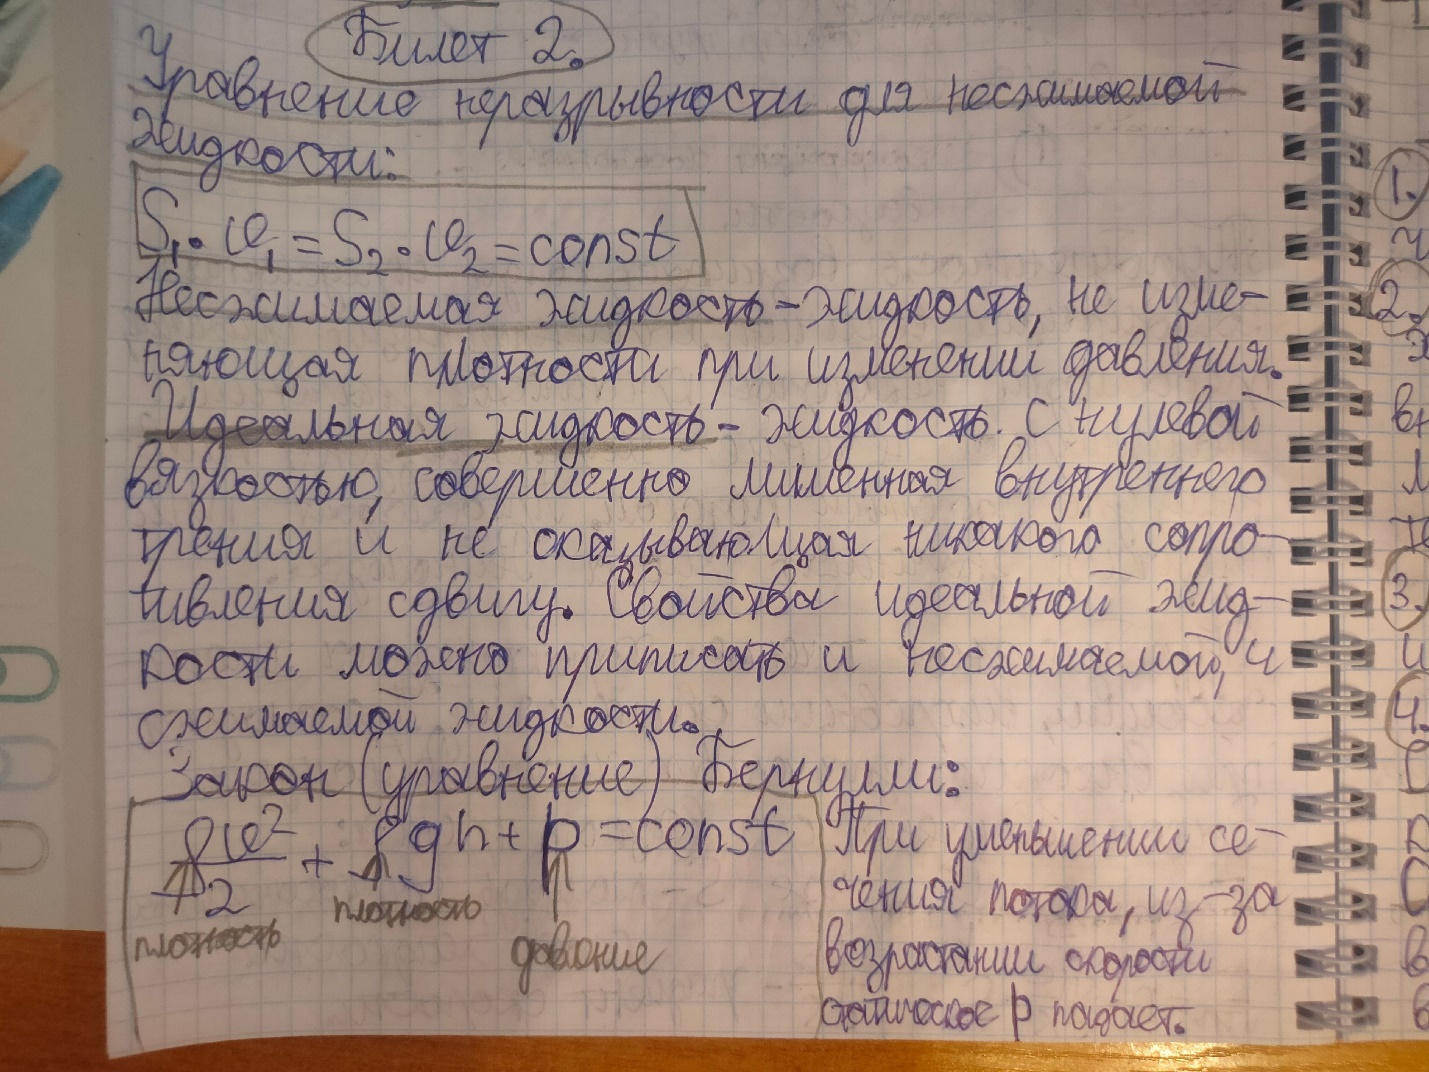 Билет 2.
Уравнение неразрывности для несжимаемой
жидкости:
S₁·υ₁=S₂·υ₂=const
Несжимаемая жидкость-жидкость, не изме-
няющая плотности при изменении давления.
Идеальная жидкость- жидкость. с нулевой
вязкостью, совершенно лишенная внутреннего
трения и не оказывающая никакого сопро-
тивления сдвигу. Свойства идеальной жид-
кости можно приписать и несжимаемой, и
сжимаемой жидкости.
Закон (уравнение) Бернулли:
ρυ²/2 + ρgh + p = const
плотность
плотность
давление
При уменьшении се-
чения потока, из-за
возрастании скорости
статическое p падает.
1.
2.
3.
4.